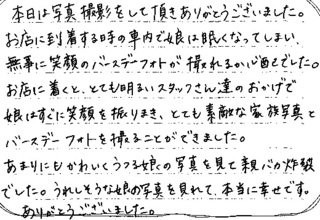 本日は写真撮影をして頂きありがとうございました。
お店に到着する時の車内で娘は眠くなってしまい、
無事に笑顔のバースデーフォトが撮れるか心配でした。
お店に着くと、とても明るいスタッフさん達のおかげで
娘はすぐに笑顔を振りまき、とても素敵な家族写真と
バースデーフォトを撮ることができました。
あまりにもかわいくうつる娘の写真を見て親バカ炸裂
でした。うれしそうな娘の写真を見れて、本当に幸せです。
ありがとうございました。